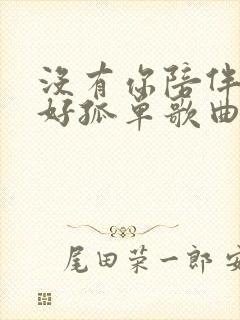 没有你陪伴
好孤单歌曲
尾田荣一郎 安